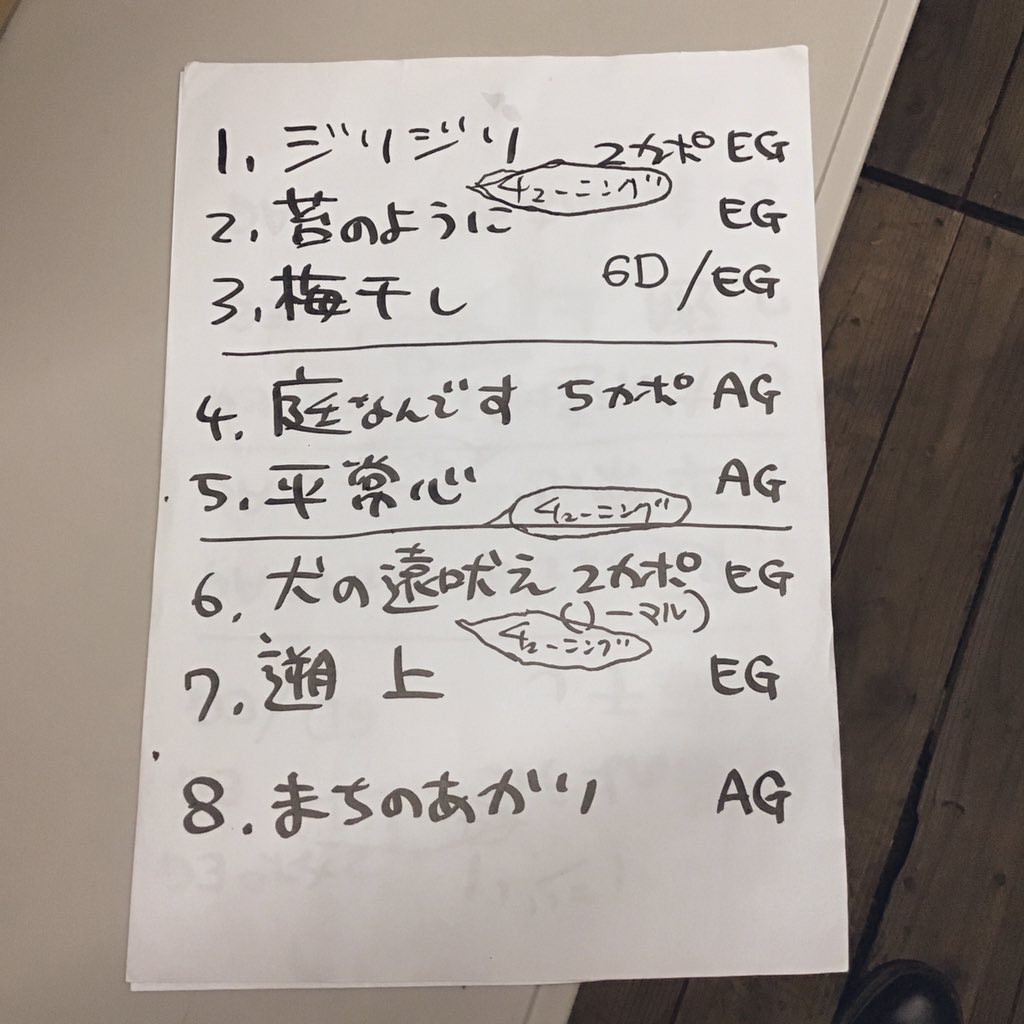 1. ジリジリ 2カポ EG
チューニング
2. 苔のように EG
3. 梅干し 6D/EG
4. 庭なんです 5カポ AG
5. 平常心 AG
チューニング
6. 犬の遠吠え 2カポ EG
(ノーマル)
チューニング
7. 遡上 EG
8. まちのあかり AG